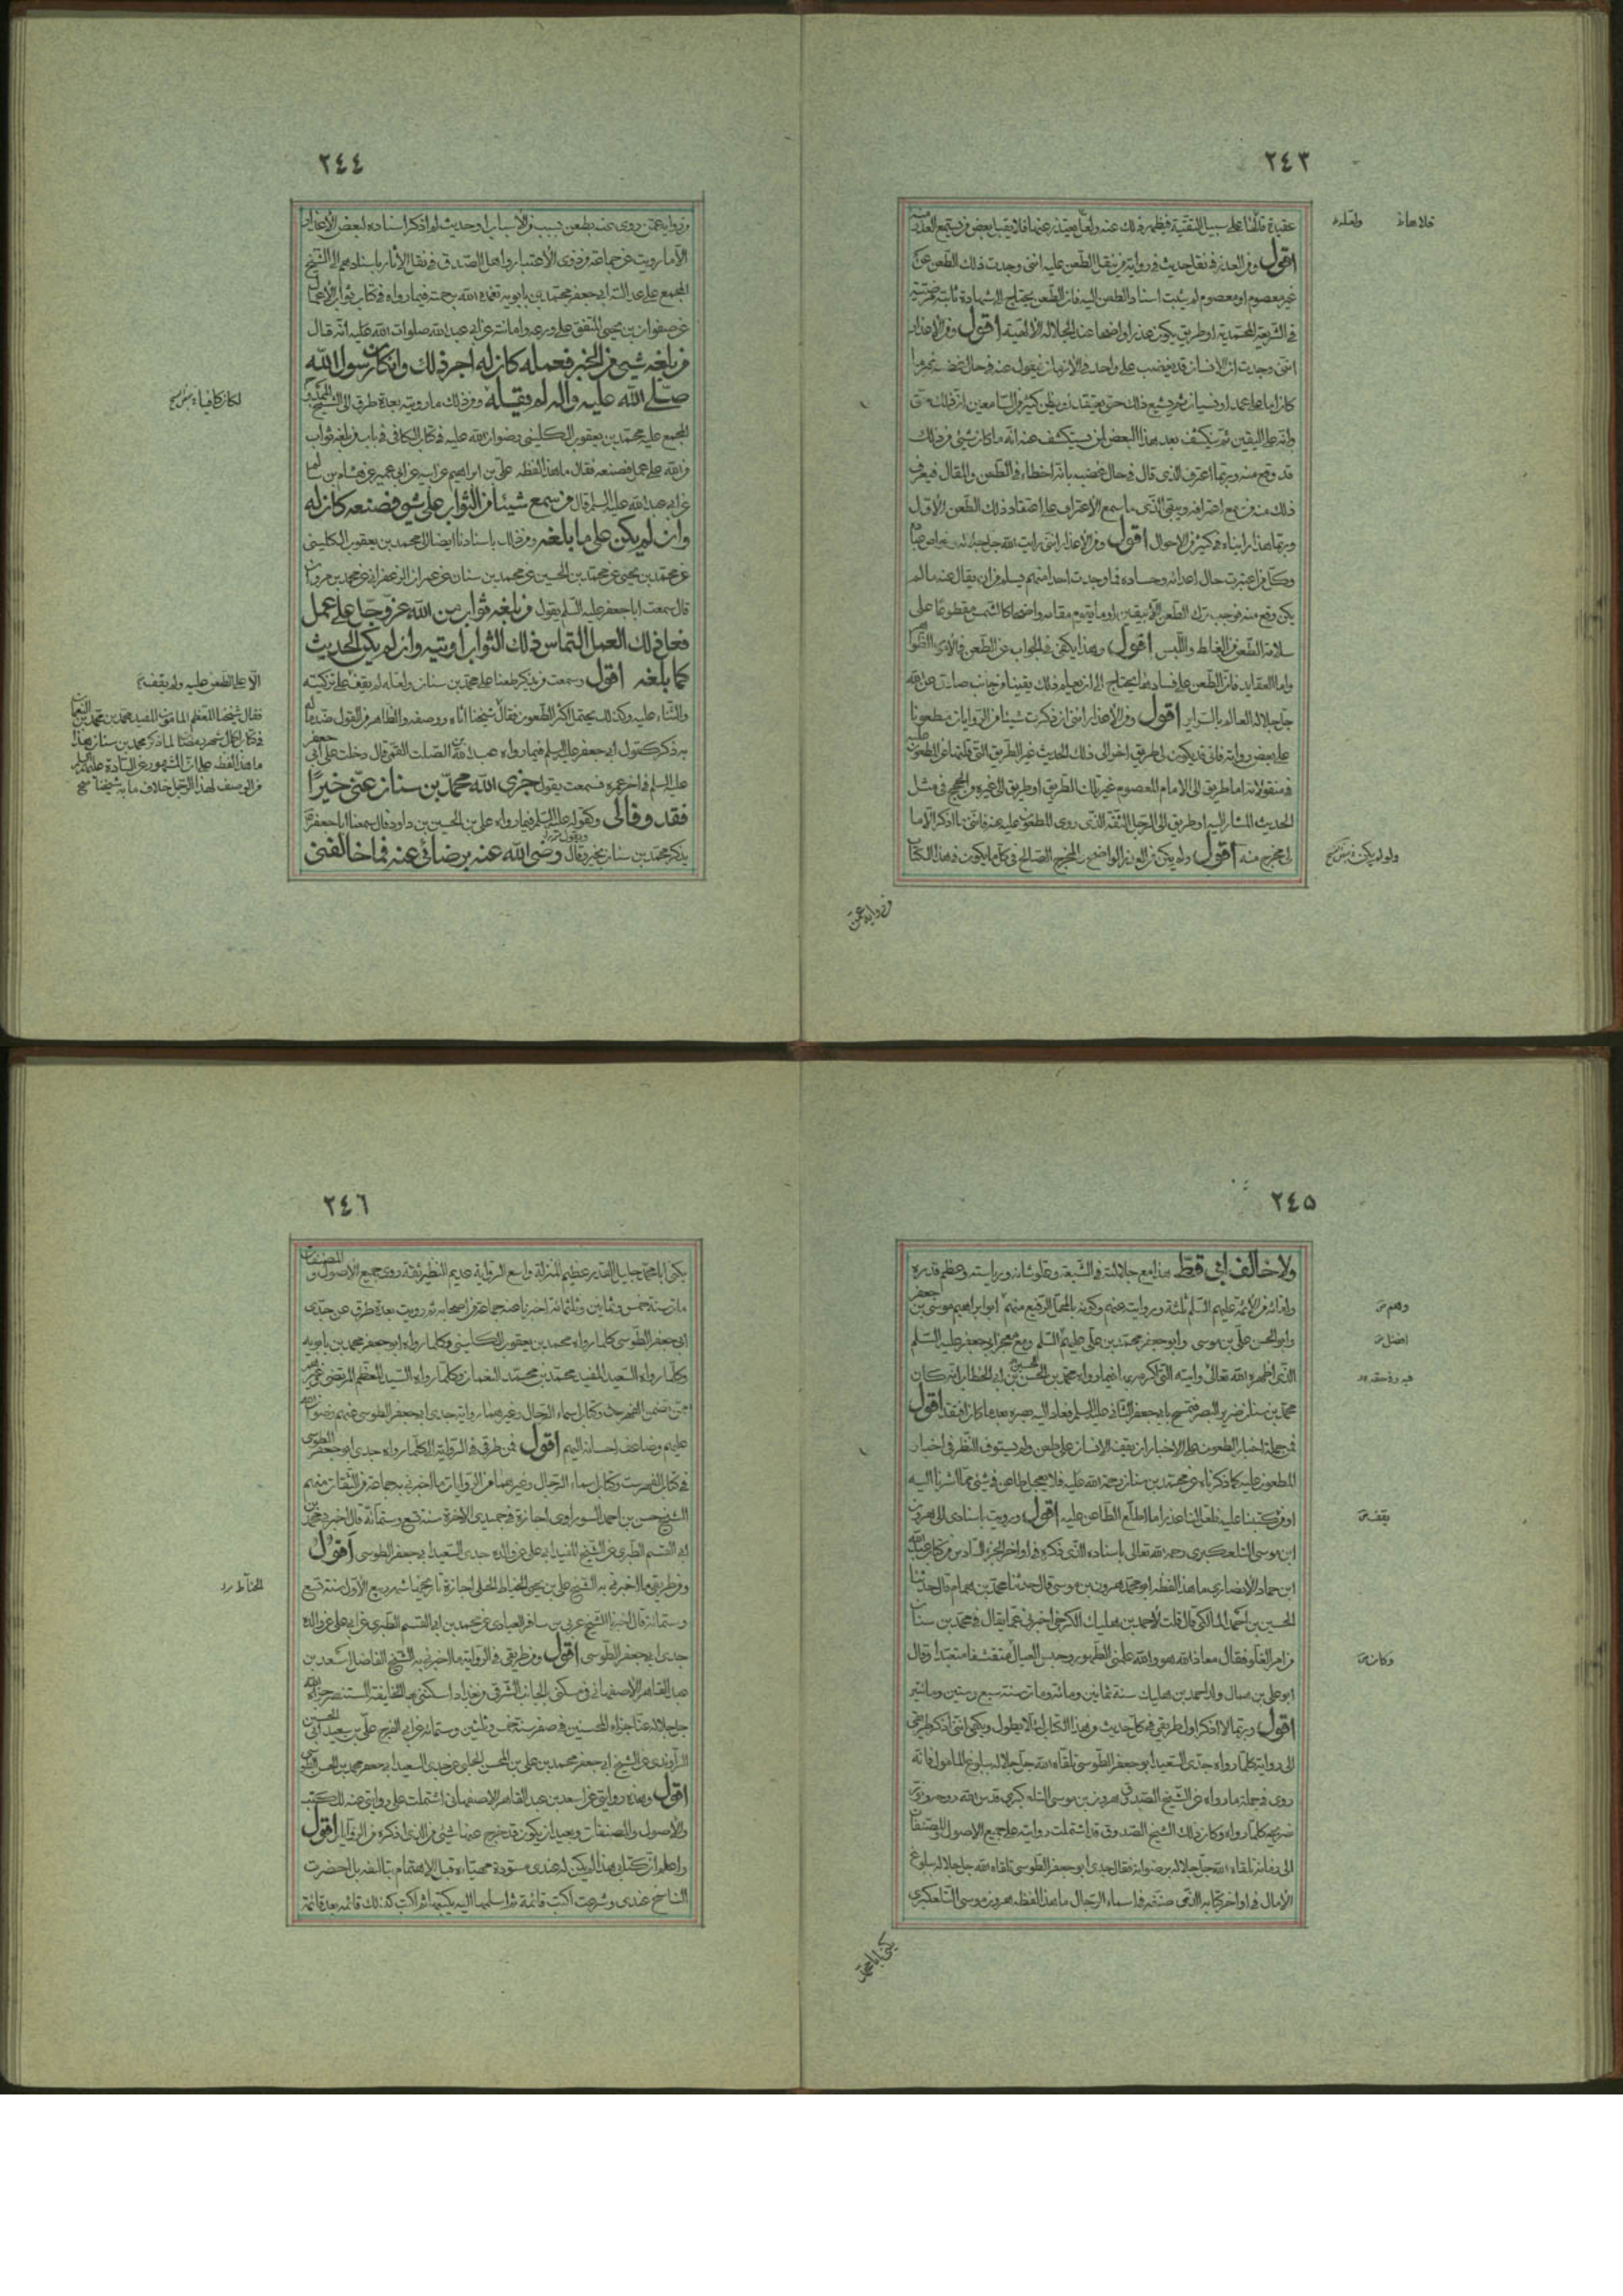 ٢٤٣
عقيدة قالها على سبيل التقية فيظهر ذلك عنه ولعله يعتذر عنها فلا يقبل بعض من يستمع العذر منه
اقول ومن العذر في نقل حديث في رواية من ينقل الطعن عليه انني وجدت ذلك الطعن عن
غير معصوم او معصوم لم يثبت اسناد الطعن اليه فان الطعن يحتاج الى شهادة ثابتة
في الشريعة المحمدية او طريق يكون عذرا واضحا عند الجلالة الالهية اقول ومن الاعذار
انني وجدت ان الانسان قد يغضب على واحد في الازمان فيقول عنه في حال غضبه
كان اما على عمد او نسيان ثم يشيع ذلك حتى يعتقد او يظن كثير من السامعين ان ذلك
وانه على اليقين ثم ينكشف بعد هذا البعض انه ما كان شئ من ذلك
قد وقع منه وربما اعترف الذي قال في حال غضبه بانه اخطاء في الطعن والمقال فيعرف
ذلك منه من سمع اعترافه ويبقى الذي ما سمع الاعتراف على اعتقاد ذلك الطعن الاول
وربما هذا رايناه في كثير من الاحوال اقول ومن الاعذار انني رايت الله جل جلاله
وكل من اعتبرت حال اعدائه وحساده فما وجدت احدا منهم يسلم من ان يقال عنه ما لم
يكن وقع منه فوجب ترك الطعن الا بيقين او ما يقوم مقامه واضحا كالشمس مقطوعا على
سلامة الطعن من الغلط واللبس اقول وهذا يكفي في الجواب عن الطعن
واما العقايد فان الطعن على فسادها يحتاج الى ان يعلم ذلك يقينا من جانب صادق عن الله
جل جلاله العالم بالسراير اقول ومن الاعذار انني ان ذكرت شيئا من الروايات مطعونا
على بعض رواته فانه قد يكون لي طريق اخر الى ذلك الحديث غير الطريق
فمنقول انه اما طريق الى الامام المعصوم غير تلك الطريق او طريق الى غيره من الحجج في مثل
الحديث المشار اليه او طريق الى الرجل الثقة الذي روى المطعون عليه عنه فانني ما اذكر الا ما
لي مخرج منه اقول ولو لم يكن من العذر الواضح والمخرج الصالح في كل ما يكون في هذا الكتاب
ولعله
من رواية عمن
٢٤٤
من رواية عمن روى عنه بطعن بسبب من الاسباب او حديث لم اذكر اسناده لبعض الاعذار
الا ما رويت عن جماعة من ذوي الاعتبار واهل الصدق في نقل الآثار باسنادهم الى الشيخ
المجمع على عدالته ابي جعفر محمد بن بابويه تغمده الله برحمته فيما رواه في كتاب ثواب الاعمال
عن صفوان بن يحيى المتفق على ورعه وامانته عن ابي عبد الله صلوات الله عليه انه قال
من بلغه شئ من الخير فعمله كان له اجر ذلك وان كان رسول الله
صلى الله عليه وآله لم يقله ومن ذلك ما رويته بعدة طرق الى الشيخ
المجمع عليه محمد بن يعقوب الكليني رضوان الله عليه في كتاب الكافي في باب من بلغه ثواب
من الله على عمل فصنعه فقال ما هذا لفظه علي بن ابراهيم عن ابيه عن ابي عمير عن هشام بن سالم
عن ابي عبد الله عليه السلم قال من سمع شيئا من الثواب على شئ فصنعه كان له
وان لم يكن على ما بلغه ومن ذلك باسنادنا ايضا الى محمد بن يعقوب الكليني
عن محمد بن يحيى عن محمد بن الحسين عن محمد بن سنان عن عمران الزعفراني عن محمد بن مروان
قال سمعت ابا جعفر عليه السلم يقول من بلغه ثواب من الله عز وجل على عمل
فعمل ذلك العمل التماس ذلك الثواب اوتيه وان لم يكن الحديث
كما بلغه اقول وسمعت من يذكر طعنا على محمد بن سنان ولعله لم يقف على تزكيته
والثناء عليه وكذلك يحتمل اكثر الطعون فقال شيخنا
يذكر كقول ابي جعفر عليه السلم فيما رواه عبد الله بن الصلت القمي قال دخلت على ابي جعفر
عليه السلم في اخر عمره فسمعته يقول جزى الله محمد بن سنان عني خيرا
فقد وفا لي وكقوله عليه السلم فيما رواه علي بن الحسين بن داود قال سمعنا ابا جعفر
يذكر محمد بن سنان بخير وقال رضي الله عنه برضائي عنه فما خالفني
لكان كافيا
الا على الطعن عليه ولم يقف
فقال شيخنا المعظم المامون المفيد محمد بن محمد بن النعمان
في كتاب كمال شهر رمضان لما ذكر محمد بن سنان بهذا
ما هذا لفظه على ان المشهور عن السادة عليهم السلم
من الوصف لهذا الرجل خلاف ما به شيخنا
٢٤٥
ولا خالف ابي قط هذا مع جلالته في الشيعة وعلو شانه ورياسته وعظم قدره
ولقائه من الائمة عليهم السلم ثلثة وروايته عنهم وكونه بالمحل الرفيع منهم ابو ابراهيم موسى بن جعفر
وابو الحسن علي بن موسى وابو جعفر محمد بن علي عليهم السلم ومع معجز ابي جعفر عليه السلم
الذي اظهره الله تعالى وآيته التي اكرمه بها فيما رواه محمد بن الحسين بن ابي الخطاب انه كان
محمد بن سنان ضرير البصر فتمسح بابي جعفر الثاني عليه السلم فعاد اليه بصره بعد ما كان افتقد اقول
فمن جملة اخطار الطعون على الاخيار ان يقف الانسان على طعن ولم يستوف النظر في اخبار
المطعون عليه كما ذكرناه عن محمد بن سنان رحمة الله عليه فلا يعجل طاعن في شئ مما اشرنا اليه
او من كتبنا عليه فلعل لنا عذرا ما اطلع الطاعن عليه اقول ورويت باسنادي الى هرون
ابن موسى التلعكبري رحمه الله تعالى باسناده الذي ذكره في اواخر الجزء السادس من كتاب عبد الله
ابن حماد الانصاري ما هذا لفظه ابو محمد هرون بن موسى قال حدثنا محمد بن همام قال حدثنا
الحسين بن احمد المالكي قال قلت لاحمد بن هليك الكرخي اخبرني عما يقال في محمد بن سنان
من امر الغلو فقال معاذ الله هو والله علمني الطهور وحبس العيال متقشفا متعبدا وقال
ابو علي بن همام ولد احمد بن هليك سنة ثمانين ومائة ومات سنة سبع وستين ومائتين
اقول وربما لا اذكر اول طريقي في كل حديث من هذا الكتاب لئلا يطول ويكفي انني اذكر طريقي
الى رواية كلما رواه جدي السعيد ابو جعفر الطوسي تلقاه الله جل جلاله ببلوغ المامول فانه
روى في جملة ما رواه عن الشيخ الصدوق هرون بن موسى التلعكبري قدس الله روحه ونور
ضريحه كلما رواه وكان ذلك الشيخ الصدوق قد اشتملت روايته على جميع الاصول والمصنفات
الى زمانه تلقاه الله جل جلاله برضوانه فقال جدي ابو جعفر الطوسي تلقاه الله جل جلاله ببلوغ
الامال في اواخر كتابه الذي صنفه في اسماء الرجال ما هذا لفظه هرون بن موسى التلعكبري
وهم
افضل
يقف
وكان
يكنى ابا محمد
٢٤٦
يكنى ابا محمد جليل القدر عظيم المنزلة واسع الرواية عديم النظير ثقة روى جميع الاصول والمصنفات
مات سنة خمس وثمانين وثلثمائة اخبرنا عنه جماعة من اصحابنا ثم رويت بعدة طرق عن جدي
ابي جعفر الطوسي كلما رواه محمد بن يعقوب الكليني وكلما رواه ابو جعفر محمد بن بابويه
وكلما رواه السعيد المفيد محمد بن محمد النعمان وكلما رواه السيد المعظم المرتضى وغيرهم
ممن تضمن الفهرست وكتاب اسماء الرجال وغيرهما رواية جدي ابي جعفر الطوسي عنهم رضوان الله
عليهم وضاعف احسانه اليهم اقول فمن طرقي في الرواية الى كلما رواه جدي ابو جعفر الطوسي
في كتاب الفهرست وكتاب اسماء الرجال وغيرهما من الروايات ما اخبرني به جماعة من الثقات منهم
الشيخ حسين بن احمد السوراوي اجازة في جمادى الاخرة سنة تسع وستمائة قال اخبرني محمد بن
ابي القسم الطبري عن الشيخ المفيد ابي علي عن والده جدي السعيد ابي جعفر الطوسي اقول
ومن طريقي ما اخبرني به الشيخ علي بن يحيى الخياط الحلي اجازة تاريخها شهر ربيع الاول سنة تسع
وستمائة قال اخبرنا الشيخ عربي بن مسافر العبادي عن محمد بن ابي القسم الطبري عن ابي علي عن والده
جدي ابي جعفر الطوسي اقول ومن طريقي في الرواية ما اخبرني به الشيخ الفاضل اسعد بن
عبد القاهر الاصفهاني في مسكني بالجانب الشرقي من بغداد اسكنني بها الخليفة المستنصر جزاه الله
جل جلاله عنا جزاء المحسنين في صفر سنة خمس وثلثين وستمائة عن ابي الفرج علي بن سعيد ابي الحسين
الراوندي عن الشيخ ابي جعفر محمد بن علي بن المحسن الحلبي عن جدي السعيد ابي جعفر محمد بن الحسن الطوسي
اقول وهذه روايتي عن اسعد بن عبد القاهر الاصفهاني اشتملت على روايتي عنه للكتب
والاصول والمصنفات وبعيد ان يكون قد خرج عنها شئ من الذي اذكره من الروايات اقول
واعلم ان كتابي هذا لم يكن له عندي مسودة مهياة قبل الاهتمام بتاليفه بل احضرت
الناسخ عندي وشرعت اكتب قائمة ثم اسلمها اليه يكتبها ثم اكتب كذلك قائمة بعد قائمة